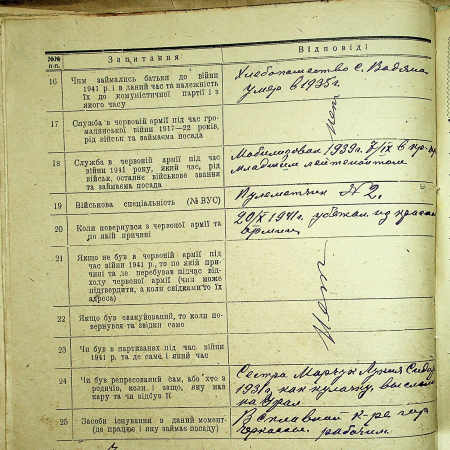 №№ п.п.
Запитання
Відповіді
16
Чим займались батьки до війни
1941 р. і в даний час та належність
їх до комуністичної партії і в
якого часу
Хлебопашество с. Водяна
умер в 1935г.
17
Служба в червоній армії під час гро-
мадянської війни 1917—22 років,
рід військ та займаема посада
нет
18
Служба в червоній армії під час
війни 1941 року, який час, рід
військ, останнє військове звання
та займаема посада
Мобилизован 1939г.
младшим лейтенантом
19
Військова спеціяльність (№ ВУС)
Пулеметчик № 2.
20
Коли повернувся з червоної армії та
по якій причині
1941г. убежал из красной
армии
21
Якщо не був в червоній армії під
час війни 1941 р., то по якій при-
чині та де перебував підчас від-
ходу червоної армії (чим може
підтвердити, а коли свідками то їх
адреса)
Нет
22
Якщо був евакуйований, то коли по-
вернувся та звідки саме
23
Чи був в партизанах під час війни
1941 р. та де саме і який час
24
Чи був репресований сам, або хто з
родичів, коли і защо, яку мав
кару та чи відбув її
Сестра
1931г. как кулачку выслали
на Урал
25
Засоби існування в даний момент
(де працює і яку займає посаду)
В сплавной к-ре гор
рабочим.